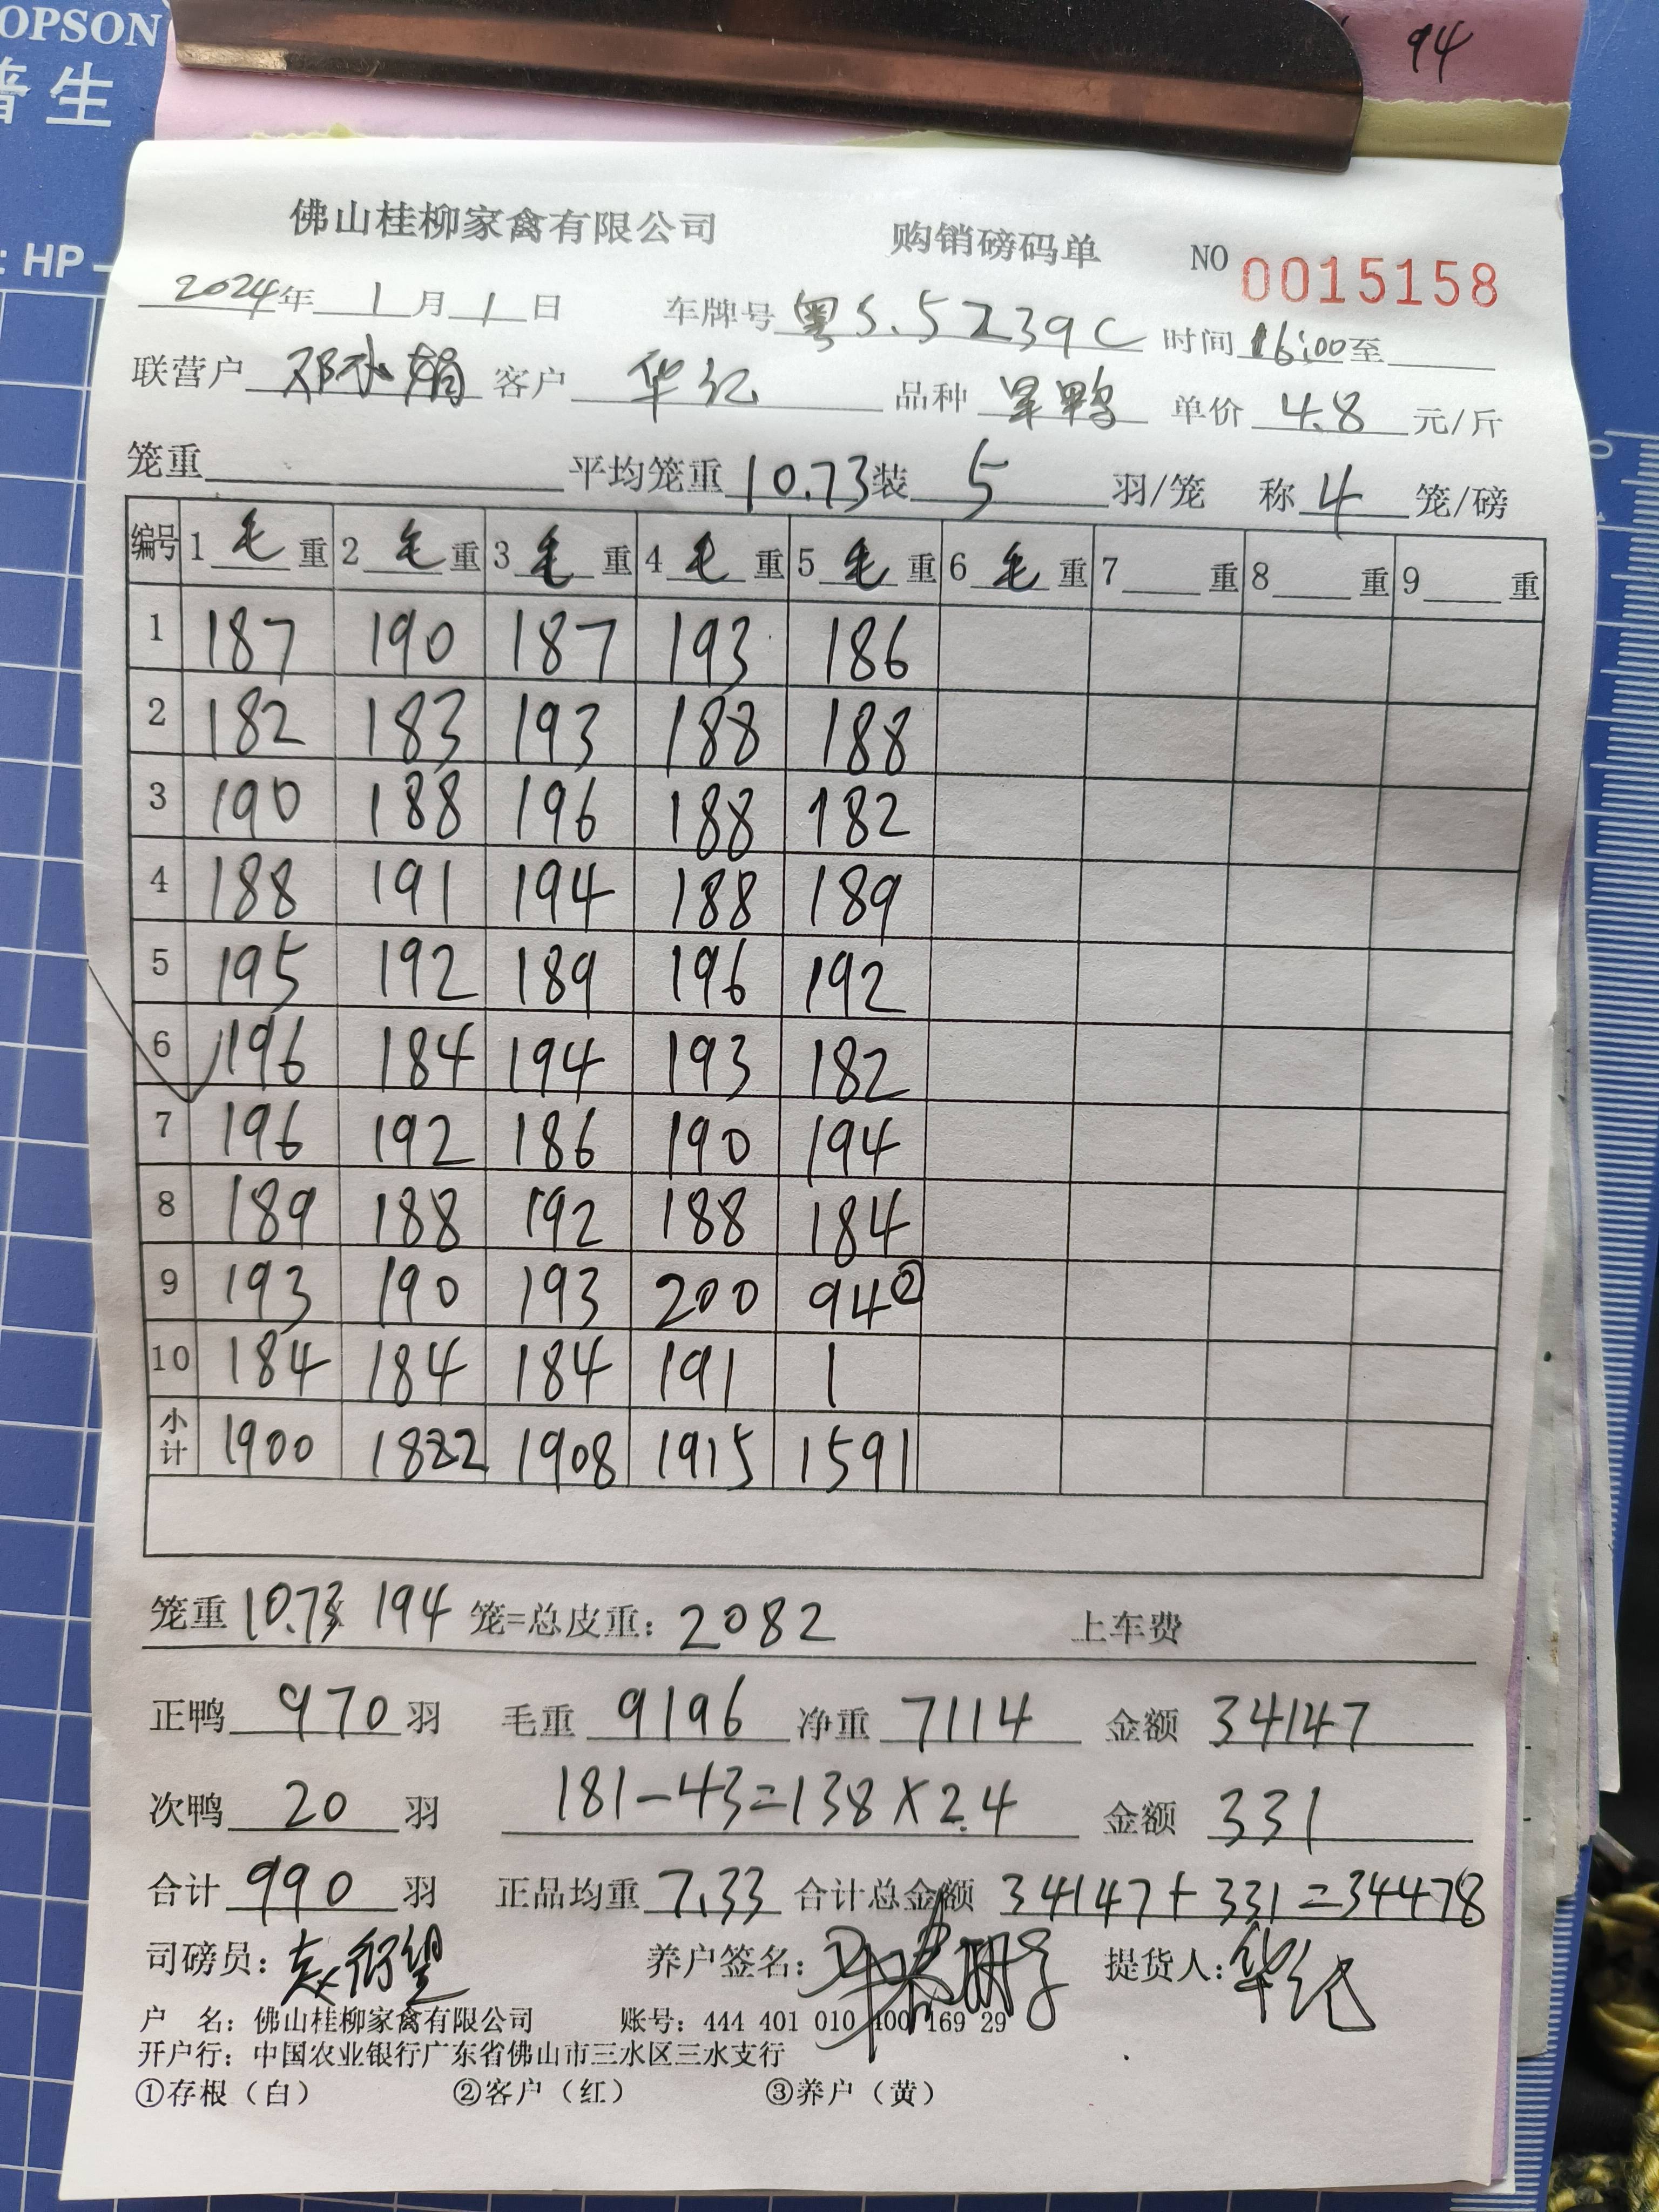 OPSON
普生
: HP-
94
佛山桂柳家禽有限公司 购销磅码单 NO 0015158
2024年1月1日 车牌号 粤S.5Z39C 时间 16:00至
联营户 邓水娟 客户 华记 品种 旱鸭 单价 4.8 元/斤
笼重 平均笼重 10.73 装 5 羽/笼 称 4 笼/磅
编号 1 毛 重 2 毛 重 3 毛 重 4 毛 重 5 毛 重 6 毛 重 7 重 8 重 9 重
1 187 190 187 193 186
2 182 183 193 188 188
3 190 188 196 188 182
4 188 191 194 188 189
5 195 192 189 196 192
6 196 184 194 193 182
7 196 192 186 190 194
8 189 188 192 188 184
9 193 190 193 200 94②
10 184 184 184 191 1
小计 1900 1882 1908 1915 1591
笼重 10.73 194 笼=总皮重: 2082 上车费
正鸭 970 羽 毛重 9196 净重 7114 金额 34147
次鸭 20 羽 181-43=138×2.4 金额 331
合计 990 羽 正品均重 7.33 合计总金额 34147+331=34478
司磅员: 养户签名: 提货人: 华记
户 名: 佛山桂柳家禽有限公司 账号: 444 401 010 400 169 29
开户行: 中国农业银行广东省佛山市三水区三水支行
①存根（白） ②客户（红） ③养户（黄）